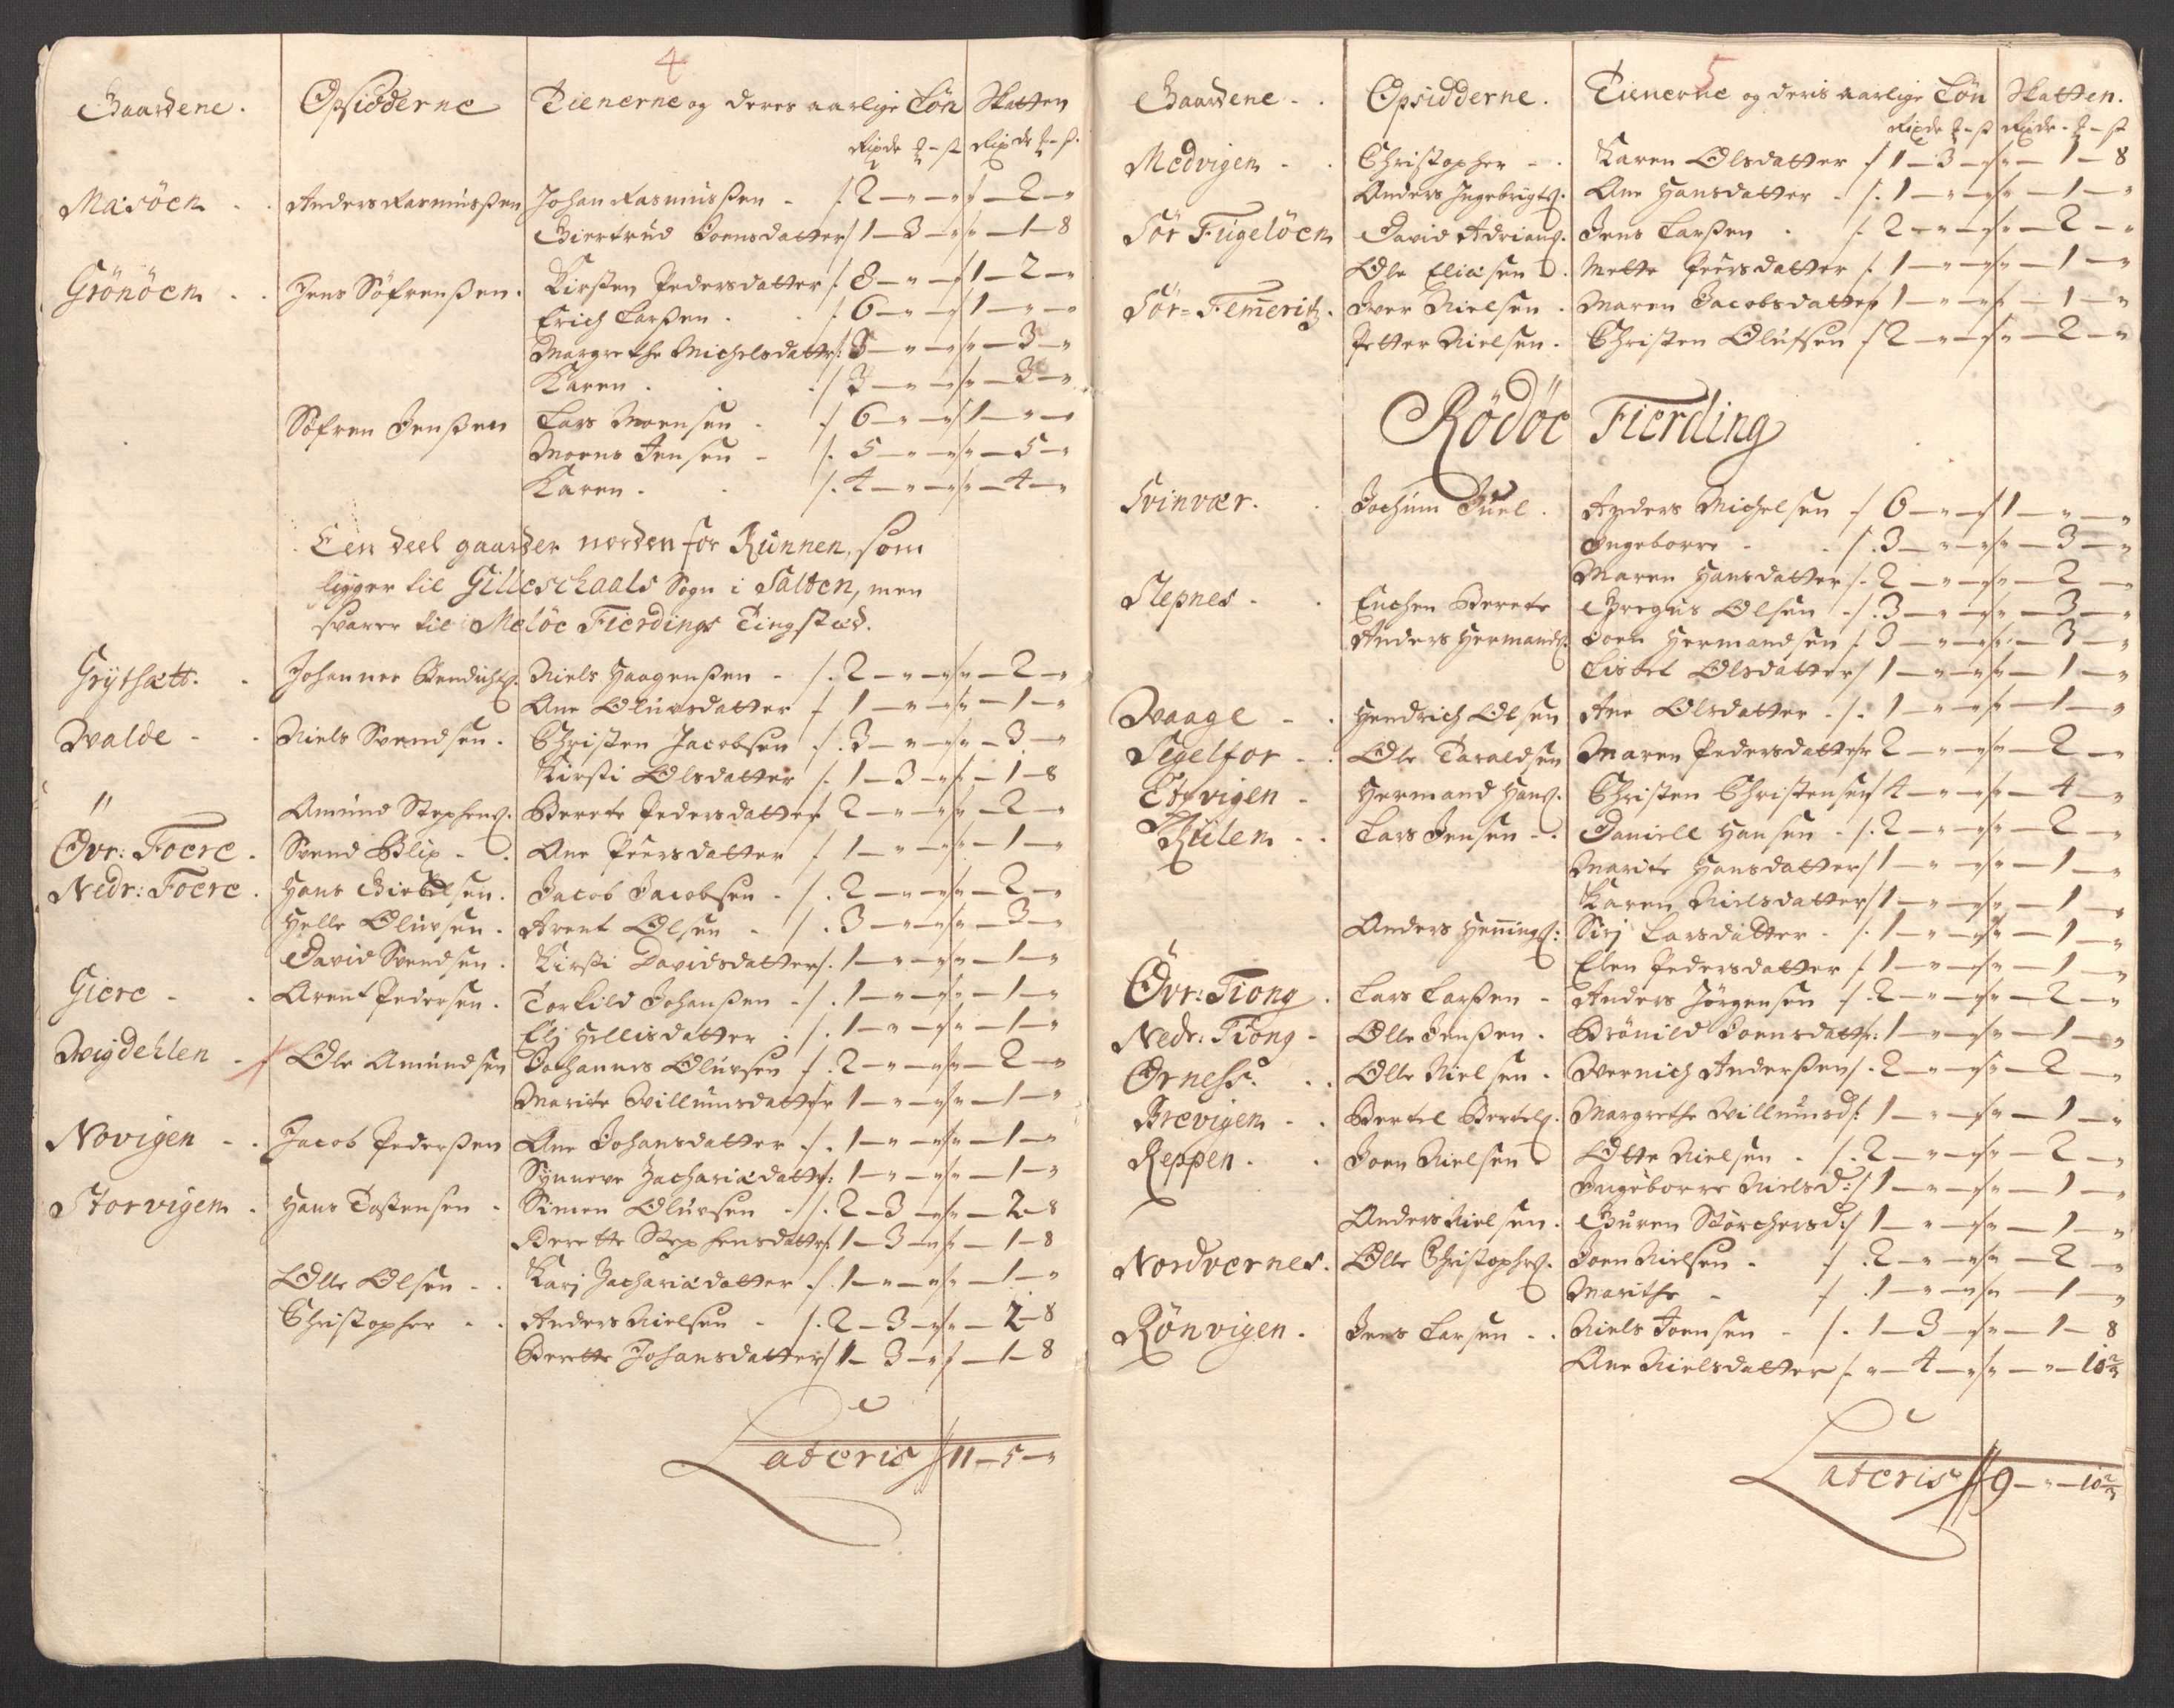 4
Gaardene. Opsidderne Tienerne og deres aarlige Løn Skatten
Rixdr # - ß Rixdr # - ß.
Masöen - . Anders Rasmusßen Johan Rasmusßen - /. 2 - " - " /" - 2 - "
Giertrud Joensdatter / 1 - 3 - " /" - 1 - 8
Grönöen - . Jens Söfrenßen. Kirsten Pedersdatter /. 8 - " - " / 1 - 2 - "
Erich Larßen . . /. 6 - " - " / 1 - " - "
Margrethe Michelsdattr /: 3 - " - " /" - 3 - "
Karen . . ./ 3 - " - " /" - 3 - "
Söfren Jenßen Lars Moensen - ./ 6 - " - " / 1 - " - "
Moens Jensen - /. 5 - " - " /" - 5 - "
Karen . . /. 4 - " - " /" - 4 - "
Een deel gaarder norden for Runnen, som
ligger til Gilleschaals Sogn i Salten, men
svarer til Melöe Fierdings Tingstæd.
Grÿthætt. . Johannes Bendichs. Niels Haagenßen - /. 2 - " - " /" - 2 - "
Ane Oluvsdatter / 1 - " - " /" - 1 - "
Walde - . Niels Svendsen. Christen Jacobsen ./. 3 - " - " /" - 3 - "
Kirsti Olsdatter /. 1 - 3 - " /" - 1 - 8
" Amund Stephens. Berete Pedersdatter / 2 - " - " /" - 2 - "
Övr: Foere. Svend Blix - . Ane Peersdatter / 1 - " - " /" - 1 - "
Nedr: Foere. Hans Giertsen. Jacob Jacobsen - /. 2 - " - " /" - 2 - "
Helle Oluvsen. Arent Olsen - /. 3 - " - " /" - 3 - "
David Svendsen. Kirsti Davidsdatter /. 1 - " - " /" - 1 - "
Giere - . Arent Pedersen. Torkild Johanßen - /. 1 - " - " /" - 1 - "
Elj Hellisdatter - /. 1 - " - " /" - 1 - "
Wigdehlen - / Ole Amundsen Johannes Oluvsen /. 2 - " - " /" - 2 - "
Marite Willumsdatter / 1 - " - " /" - 1 - "
Novigen - . Jacob Pederßen Ane Johansdatter ./. 1 - " - " /" - 1 - "
Synneve Zachariædattr: 1 - " - " /" - 1 - "
Storvigen . Hans Tostensen - Simen Oluvsen - /. 2 - 3 - " /" - 2 - 8
Berette Stephensdattr /: 1 - 3 - " /" - 1 - 8
Olle Olsen - . Karj Zachariædatter ./. 1 - " - " /" - 1 - "
Christopher - . Anders Nielsen - /. 2 - 3 - " /" - 2 - 8
Berette Johansdatter / 1 - 3 - " /" - 1 - 8
Lateris // 11 - 5 - "
5
Gaardene - . Opsidderne. Tienerne og deris aarlige Løn Skatten.
Rixdr # - ß Rixdr - # - ß
Medvigen - . Christopher - . Karen Olsdatter ./ 1 - 3 - " /" - 1 - 8
Anders Ingebrigts. Ane Hansdatter - /. 1 - " - " /" - 1 - "
Sör Fugelöen David Adrians. Jens Larßen . /. 2 - " - " /" - 2 - "
Ole Eliasen. Mette Peersdatter /. 1 - " - " /" - 1 - "
Sör-Femeritz. Iver Nielsen . Maren Jacobsdatter / 1 - " - " /" - 1 - "
Petter Nielsen. Christen Olufsen / 2 - " - " /" - 2 - "
Rödöe Fierding
Svinvær. . Jochum Juel. Anders Michelsen ./ 6 - " - " / 1 - " - "
Ingeborre - . /. 3 - " - " /" - 3 - "
Maren Hansdatter /. 2 - " - " /" - 2 - "
Slepnes - . Enchen Berete Gregus Olsen - /. 3 - " - " /" - 3 - "
Anders Hermands. Joen Hermandsen /. 3 - " - " /" - 3 - "
Lisbet Olsdatter / 1 - " - " /" - 1 - "
Waage - . Hendrich Olsen Ane Olsdatter - /. 1 - " - " /" - 1 - "
Segelfor - . Ole Taraldsen Maren Pedersdatter / 2 - " - " /" - 2 - "
Tovigen - Hermand Hans. Christen Christensen / 4 - " - " /" - 4 - "
Kiilen - . Lars Jensen - . Daniell Hansen - /. 2 - " - " /" - 2 - "
Marite Hansdatter / 1 - " - " /" - 1 - "
Karen Nielsdatter / 1 - " - " /" - 1 - "
Anders Hennings: Sirj Larsdatter - /. 1 - " - " /" - 1 - "
Elen Pedersdatter /. 1 - " - " /" - 1 - "
Övr: Tiong . Lars Larßen - Anders Jörgensen ./. 2 - " - " /" - 2 - "
Nedr: Tiong - Olle Jenßen . Brönild Joensdattr: 1 - " - " /" - 1 - "
Örness. . . Olle Nielsen . Wernich Anderßen /. 2 - " - " /" - 2 - "
Brevigen - . Bertel Bertels. Margrethe Willumsd: 1 - " - " /" - 1 - "
Reppen - . Joen Nielsen Otte Nielsen - /. 2 - " - " /" - 2 - "
Ingeborre Nielsd: / 1 - " - " /" - 1 - "
Anders Nielsen. Guren Störchersd: / 1 - " - " /" - 1 - "
Nordvernes. Olle Christophs. Joen Nielsen - / . 2 - " - " /" - 2 - "
Marithe - / . 1 - " - " /" - 1 - "
Rönvigen . Jens Larsen - . Niels Joensen - /. 1 - 3 - " /" - 1 - 8
Ane Nielsdatter /. " - 4 - " /" - " - 10 2/3
Lateris // 9 - " - 10 2/3